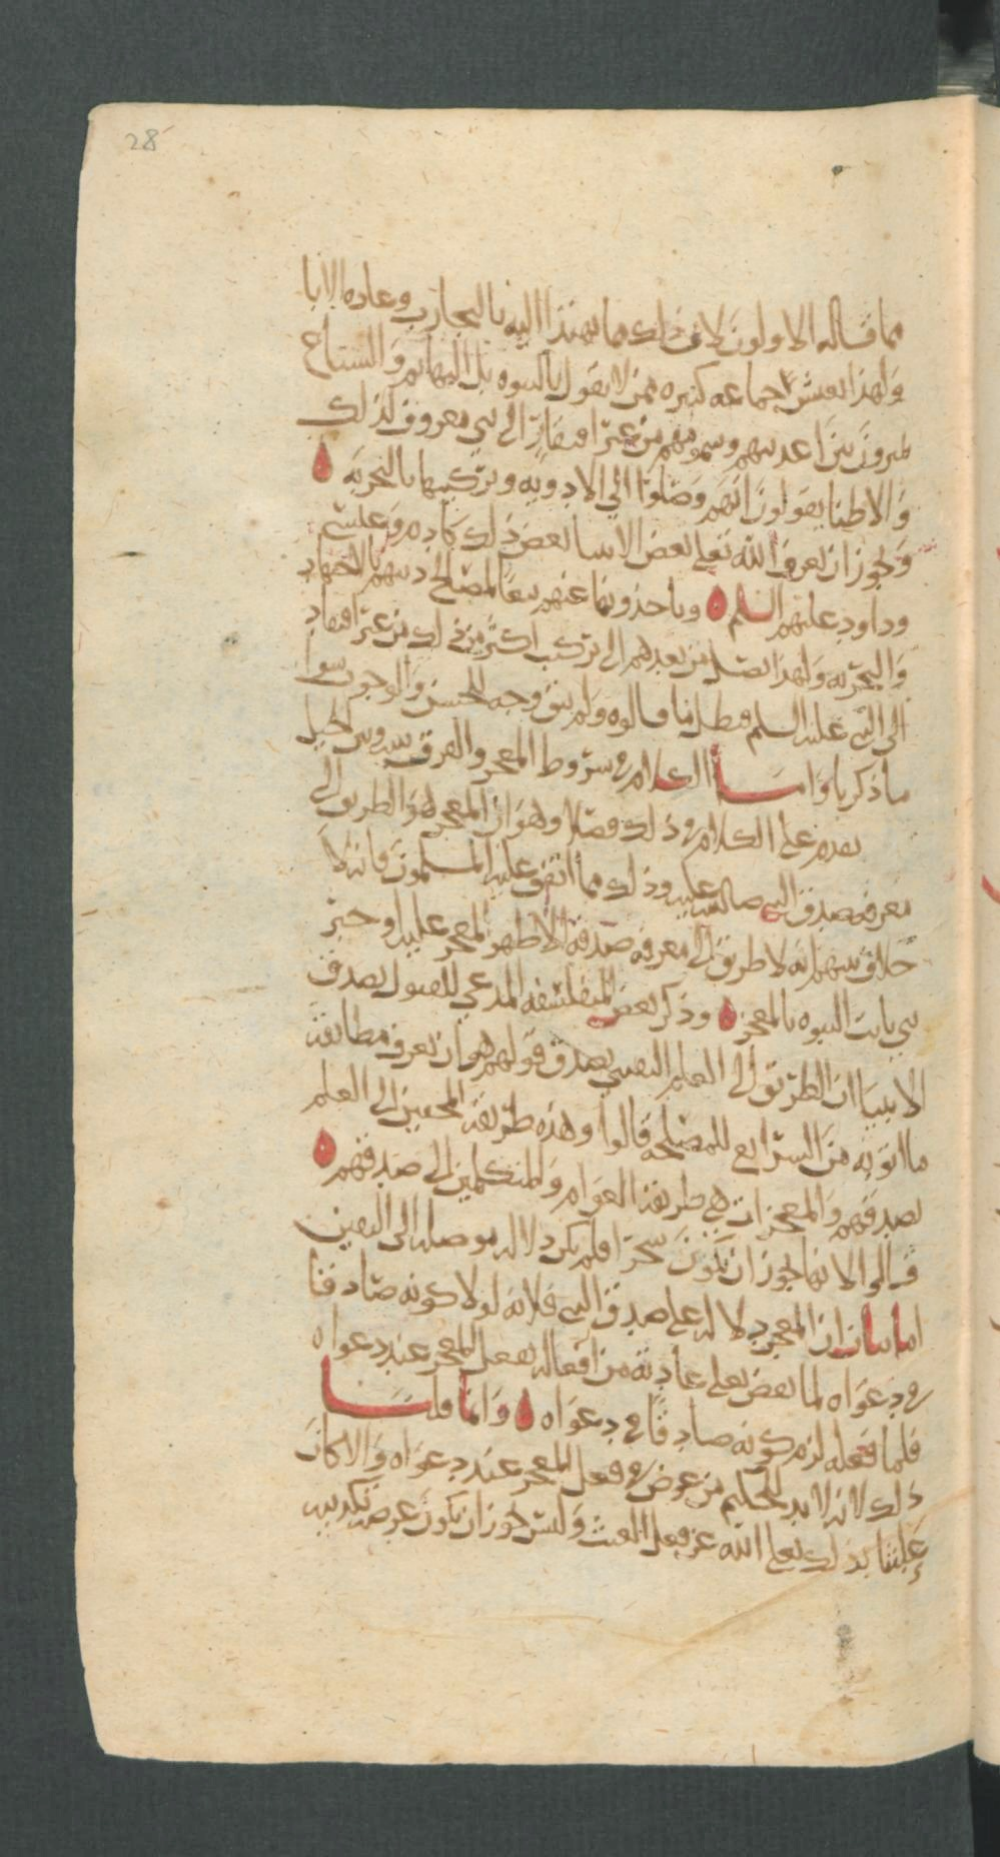 28
مما قاله الاولون لان ذلك مما يهتدا اليه بالتجارب وعاده الابا
ولهذا يعيش جماعه كثيره ممن لا يقول بالنبوه بل البهائم والسباع
يميزون بين اغديتهم وسمومهم من غير افتقار الى نبي معروف لذلك
والاطبا يقولون انهم وصلوا الى الادويه وتركيبها بالتجربه
ويجوز ان يعرف الله تعلى بعض الانبيا بعض ذلك كادم وعيسى
وداود عليهم السلم وياخذونها عنهم تبعا لمصالح دينهم بالاجتهاد
والتجربه ولهذا يصل من بعدهم الى تركيب اكثر من ذلك من غير افتقاد
الى النبي عليه السلم فبطل ما قالوه ولم يبق وجه للحسن والوجوب سوا
ما ذكرنا واما الكلام في شروط المعجز والفرق بينه وبين الحيل
نقدم على الكلام في ذلك فصلا وهو ان المعجز هو الطريق الى
معرفه صدق النبي صلى الله عليه وذلك مما اتفق عليه المسلمون فانه لا
خلاف بينهم انه لا طريق الى معرفه صدقه الا ظهر المعجز عليه او خبر
نبي ثابت النبوه بالمعجز وذكر بعض المتفلسفه المدعي للقبول بصدق
الانبيا ان الطريق الى العلم اليقيني بصدق قولهم هو ان يعرف مطابقة
ما اتو به من الشرايع للمصلحه قالوا وهذه طريقة المحقين الى العلم
بصدقهم والمعجزات هي طريقة العوام والمتكلمين الى صدقهم
قالوا لانها يجوز ان تكون سحرا فلم يكن دلاله موصله الى اليقين
اما بيان ان المعجز دلاله على صدق النبي فلانه لولا كونه صادقا
في دعواه لما نقض تعلى عادته من افعاله بفعل المعجز عند دعواه
فلما فعله لزم كونه صادقا في دعواه وانما قلنا
ذلك لانه لا بد للحكيم من غرض في فعل المعجز عند دعواه والا كان
عابثا بذلك تعلى الله عن فعل العبث وليس يجوز ان يكون غرضه تكذيبه